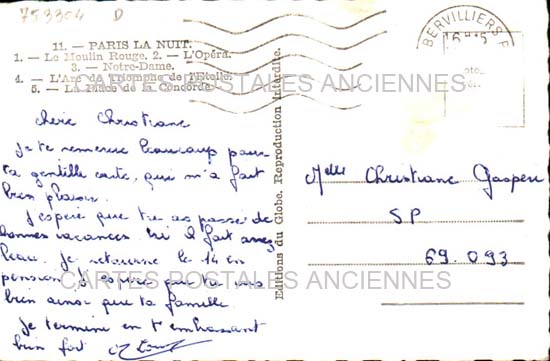 753304 D
11. — PARIS LA NUIT.
1. — Le Moulin Rouge. 2. — L'Opéra.
3. — Notre-Dame.
4. — L'Arc de Triomphe de l'Etoile.
5. — La Place de la Concorde.
BERVILLIERS P
CARTES POSTALES ANCIENNES
Editions du Globe. Reproduction Interdite.
chère Christiane
Je te remercie beaucoup pour
ta gentille carte, qui m'a fait
bien plaisir.
J'espère que tu as passé de
bonnes vacances. Ici il fait assez
beau. Je retourne le 14 en
pension. J'espère que tu vas
bien ainsi que ta famille
Je termine en t'embrassant
bien fort
Melle Christiane Gasperi
SP
69.093
CARTES POSTALES ANCIENNES